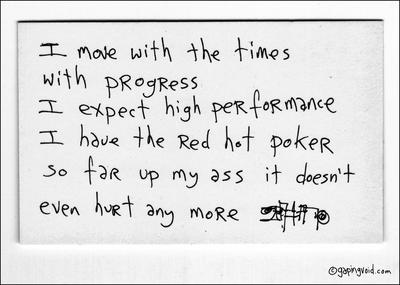 I move with the times
with progress
I expect high performance
I have the red hot poker
so far up my ass it doesn't
even hurt any more
©gapingvoid.com